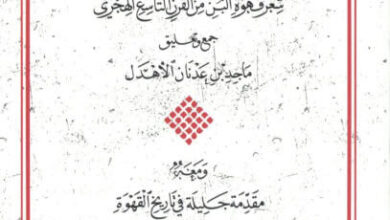 شعر وقهوة البن من القرن التاسع الهجري
جمع وتعليق
ماجد بن عدنان الأهدل
ومعه
مقدمة جليلة في تاريخ القهوة